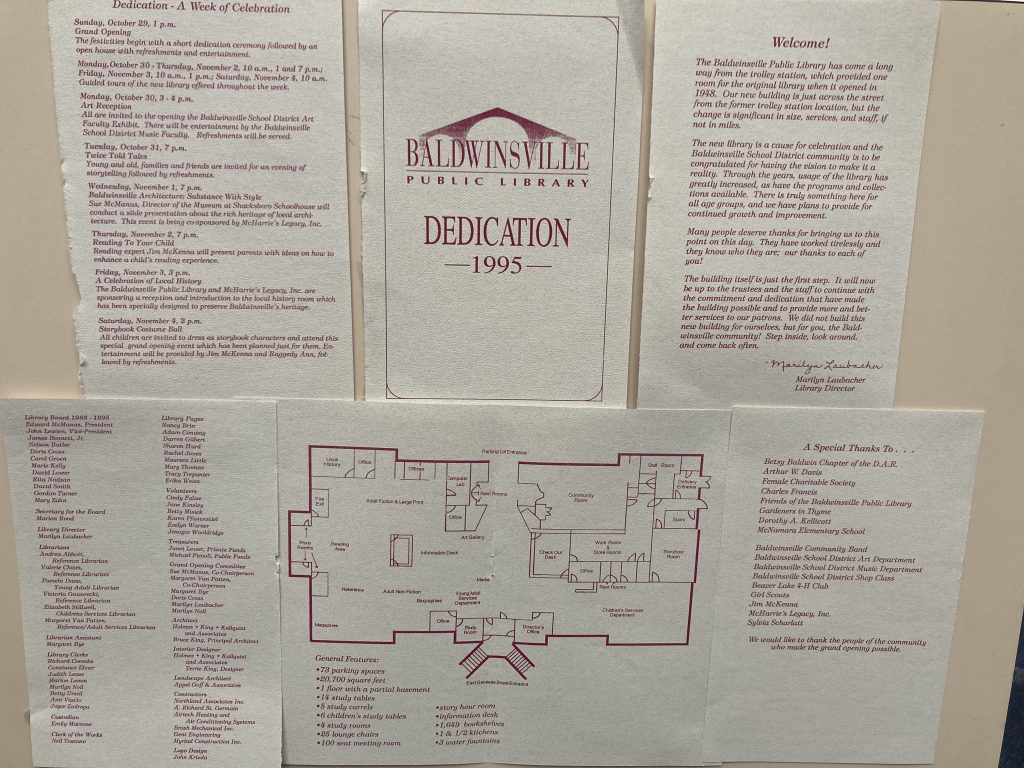 Dedication - A Week of Celebration
Sunday, October 29, 1 p.m.
Grand Opening
The festivities begin with a short dedication ceremony followed by an
open house with refreshments and entertainment.
Monday, October 30 - Thursday, November 2, 10 a.m., 1 and 7 p.m.;
Friday, November 3, 10 a.m., 1 p.m.; Saturday, November 4, 10 a.m.
Guided tours of the new library offered throughout the week.
Monday, October 30, 3 - 4 p.m.
Art Reception
All are invited to the opening the Baldwinsville School District Art
Faculty Exhibit. There will be entertainment by the Baldwinsville
School District Music Faculty. Refreshments will be served.
Tuesday, October 31, 7 p.m.
Twice Told Tales
Young and old, families and friends are invited for an evening of
storytelling followed by refreshments.
Wednesday, November 1, 7 p.m.
Baldwinsville Architecture: Substance With Style
Sue McManus, Director of the Museum at Shacksboro Schoolhouse will
conduct a slide presentation about the rich heritage of local archi-
tecture. This event is being co-sponsored by McHarrie's Legacy, Inc.
Thursday, November 2, 7 p.m.
Reading To Your Child
Reading expert Jim McKenna will present parents with ideas on how to
enhance a child's reading experience.
Friday, November 3, 3 p.m.
A Celebration of Local History
The Baldwinsville Public Library and McHarrie's Legacy, Inc. are
sponsoring a reception and introduction to the local history room which
has been specially designed to preserve Baldwinsville's heritage.
Saturday, November 4, 2 p.m.
Storybook Costume Ball
All children are invited to dress as storybook characters and attend this
special grand opening event which has been planned just for them. En-
tertainment will be provided by Jim McKenna and Raggedy Ann, fol-
lowed by refreshments.
BALDWINSVILLE
PUBLIC LIBRARY
DEDICATION
1995
Welcome!
The Baldwinsville Public Library has come a long
way from the trolley station, which provided one
room for the original library when it opened in
1948. Our new building is just across the street
from the former trolley station location, but the
change is significant in size, services, and staff, if
not in miles.
The new library is a cause for celebration and the
Baldwinsville School District community is to be
congratulated for having the vision to make it a
reality. Through the years, usage of the library has
greatly increased, as have the programs and collec-
tions available. There is truly something here for
all age groups, and we have plans to provide for
continued growth and improvement.
Many people deserve thanks for bringing us to this
point on this day. They have worked tirelessly and
they know who they are; our thanks to each of
you!
The building itself is just the first step. It will now
be up to the trustees and the staff to continue with
the commitment and dedication that have made
the building possible and to provide more and bet-
ter services to our patrons. We did not build this
new building for ourselves, but for you, the Bald-
winsville community! Step inside, look around,
and come back often.
Marilyn Laubacher
Marilyn Laubacher
Library Director
Library Board 1988 - 1995
Edward McManus, President
John Lewien, Vice-President
James Bennett, Jr.
Nelson Butler
Doris Cross
Carol Green
Marie Kelly
David Lower
Rita Nadzan
David Smith
Gordon Turner
Mary Zahn
Secretary for the Board
Marion Rood
Library Director
Marilyn Laubacher
Librarians
Andrea Abbott,
Reference Librarian
Valerie Chism,
Reference Librarian
Pamela Dana,
Young Adult Librarian
Victoria
Reference Librarian
Elizabeth Stillwell,
Childrens Services Librarian
Margaret Van Patten,
Reference/Adult Services Librarian
Librarian Assistant
Margaret Bye
Library Clerks
Richard Coombs
Constance Elmer
Judith Lease
Marion Lemm
Marilyn Noll
Betty Ursell
Ann Vascio
Joyce Zadroga
Custodian
Emily Maccose
Clerk of the Works
Neil Toscano
Library Pages
Nancy Brin
Adam Conway
Darren Gilbert
Sharon Hurd
Rachel Jones
Maureen Little
Mary Thomas
Tracy Trepanter
Erika Weiss
Volunteers
Cindy Falise
Jane Kinsley
Betty Musick
Karen
Evelyn Warner
Jenogee Wooldridge
Treasurers
Janet Lower, Private Funds
Michael Piccoli, Public Funds
Grand Opening Committee
Sue McManus, Co-Chairperson
Margaret Van Patten,
Co-Chairperson
Margaret Bye
Doris Cross
Marilyn Laubacher
Marilyn Noll
Architect
Holmes • King • Kallquist
and Associates
Bruce King, Principal Architect
Interior Designer
Holmes • King • Kallquist
and Associates
Terrie King, Designer
Landscape Architect
Appel Goff & Associates
Contractors
Northland Associates Inc.
A. Richard St. Germain
Airtech Heating and
Air Conditioning Systems
Brash Mechanical Inc.
Gent Engineering
Myriad Construction Inc.
Logo Design
John Krisda
Parking Lot Entrance
Local
History
Office
Offices
Computer
Lab
Rest Rooms
Community
Room
Staff Room
Delivery
Entrance
Fire
Exit
Adult Fiction & Large Print
Office
Stairs
Art Gallery
Study
Rooms
Reading
Area
Information Desk
Check Out
Desk
Work Room
&
Store Rooms
Storyhour
Room
Office
Media
Rest Rooms
Reference
Adult Non-Fiction
Biographies
Young Adult
Services
Department
Children's Services
Department
Magazines
Office
Study
Room
Director's
Office
East Genesee Street Entrance
General Features:
•73 parking spaces
•20,700 square feet
•1 floor with a partial basement
•14 study tables
•5 study carrels
•6 children's study tables
•4 study rooms
•25 lounge chairs
•100 seat meeting room
•story hour room
•information desk
•1,649 bookshelves
•1 & 1/2 kitchens
•3 water fountains
A Special Thanks To . . .
Betsy Baldwin Chapter of the D.A.R.
Arthur W. Davis
Female Charitable Society
Charles Francis
Friends of the Baldwinsville Public Library
Gardeners in Thyme
Dorothy A. Kellicott
McNamara Elementary School
Baldwinsville Community Band
Baldwinsville School District Art Department
Baldwinsville School District Music Department
Baldwinsville School District Shop Class
Beaver Lake 4-H Club
Girl Scouts
Jim McKenna
McHarrie's Legacy, Inc.
Sylvia Scharlatt
We would like to thank the people of the community
who made the grand opening possible.